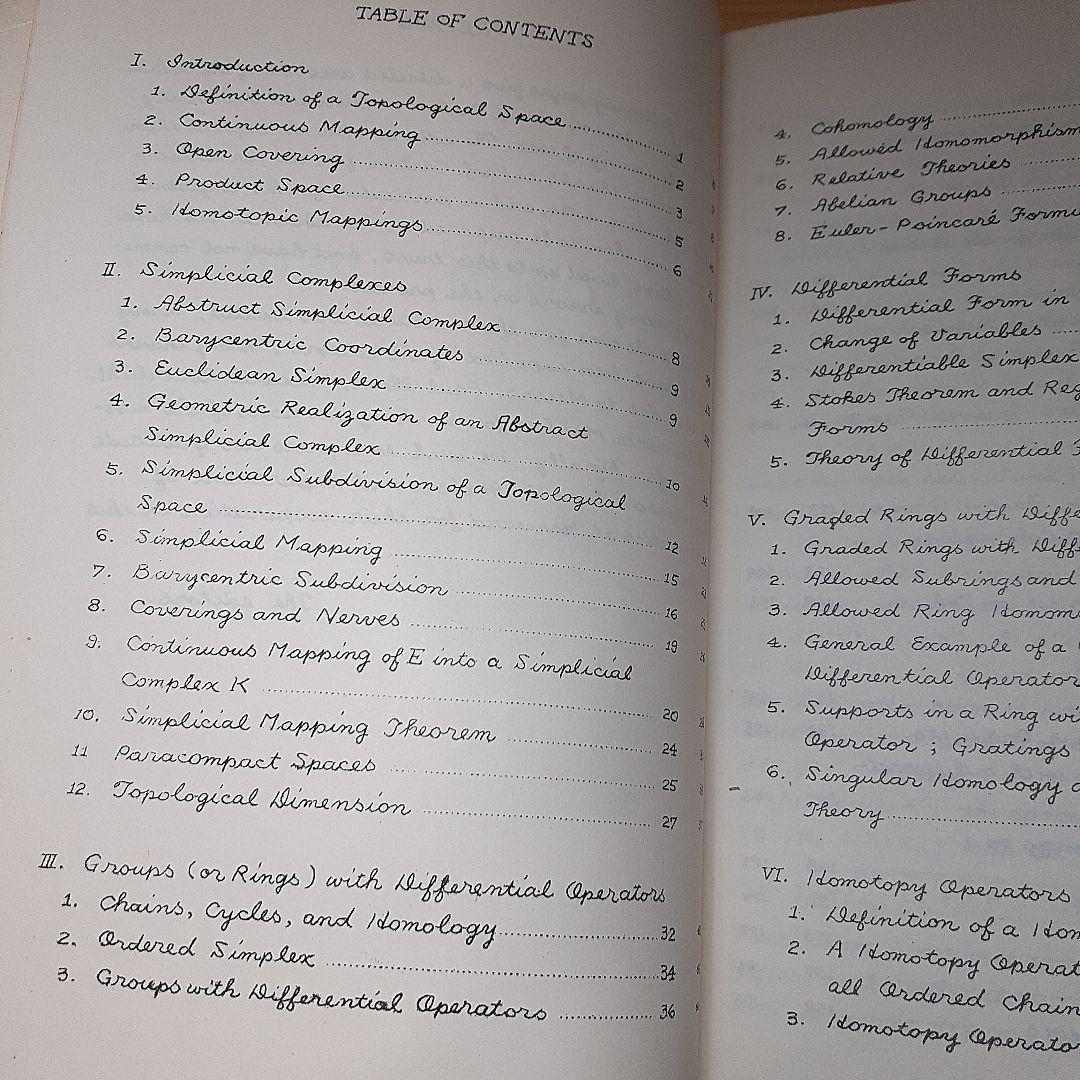 TABLE OF CONTENTS
I. Introduction
1. Definition of a Topological Space.......... 1
2. Continuous Mapping.......... 2
3. Open Covering.......... 3
4. Product Space.......... 5
5. Homotopic Mappings.......... 6
II. Simplicial Complexes
1. Abstract Simplicial Complex.......... 8
2. Barycentric Coordinates.......... 9
3. Euclidean Simplex.......... 9
4. Geometric Realization of an Abstract
Simplicial Complex.......... 10
5. Simplicial Subdivision of a Topological
Space.......... 12
6. Simplicial Mapping.......... 15
7. Barycentric Subdivision.......... 16
8. Coverings and Nerves.......... 19
9. Continuous Mapping of E into a Simplicial
Complex K.......... 20
10. Simplicial Mapping Theorem.......... 24
11 Paracompact Spaces.......... 25
12. Topological Dimension.......... 27
III. Groups (or Rings) with Differential Operators
1. Chains, Cycles, and Homology.......... 32
2. Ordered Simplex.......... 34
3. Groups with Differential Operators.......... 36
4. Cohomology..........
5. Allowed Homomorphism
6. Relative Theories..........
7. Abelian Groups..........
8. Euler-Poincaré Formu
IV. Differential Forms
1. Differential Form in
2. Change of Variables..........
3. Differentiable Simplex
4. Stokes Theorem and Reg
Forms..........
5. Theory of Differential F
V. Graded Rings with Diffe
1. Graded Rings with Diff
2. Allowed Subrings and
3. Allowed Ring Homom
4. General Example of a
Differential Operator
5. Supports in a Ring wi
Operator ; Gratings
6. Singular Homology
Theory..........
VI. Homotopy Operators
1. Definition of a Hom
2. A Homotopy Operat
all Ordered Chain
3. Homotopy Operato